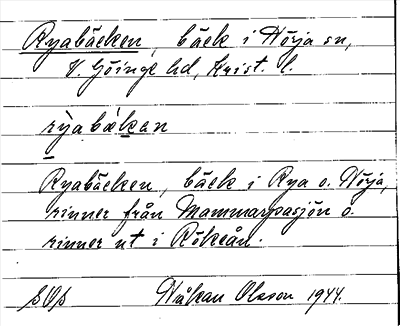 Ryabäcken, bäck i Nörja sn,
V. Göinge hd, Krist. l.
rỳabäkan
Ryabäcken, bäck i Rya o. Nörja,
rinner från Mammarpasjön o.
rinner ut i Rökeån.
Håkan Olsson 1944.